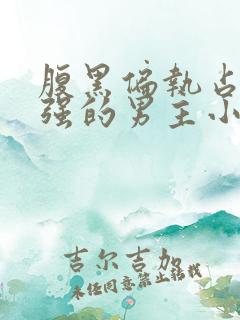 腹黑偏执占
强的男主小
吉尔吉加
未经同意禁止转载